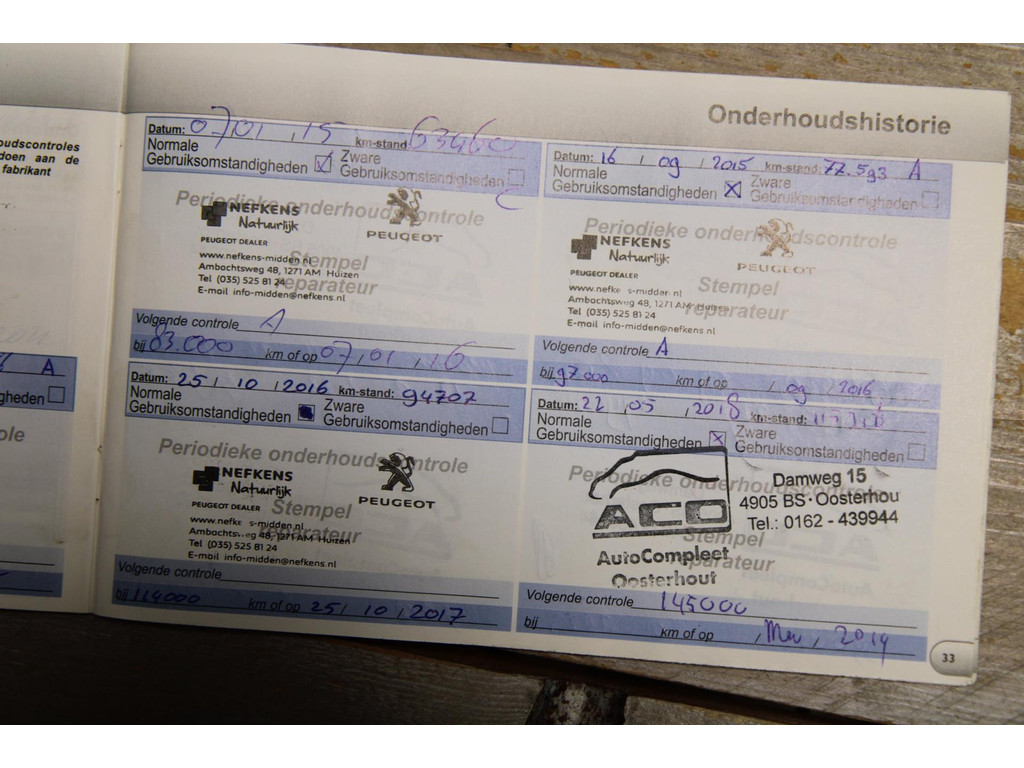 Onderhoudshistorie
oudscontroles
doen aan de
fabrikant
A
gheden
ole
Datum: 07/01/15 km-stand: 63460
Normale
Gebruiksomstandigheden
Zware
Gebruiksomstandigheden
C
Periodieke onderhoudscontrole
NEFKENS
Natuurlijk
PEUGEOT
PEUGEOT DEALER
www.nefkens-midden.nl
Stempel
Ambachtsweg 48, 1271 AM Huizen
Tel (035) 525 81 24
reparateur
E-mail info-midden@nefkens.nl
Volgende controle A
bij 83.000 km of op 07/01/16
Datum: 16/09/2015 km-stand: 77.593 A
Normale
Gebruiksomstandigheden
Zware
Gebruiksomstandigheden
Periodieke onderhoudscontrole
NEFKENS
Natuurlijk
PEUGEOT
PEUGEOT DEALER
www.nefkens-midden.nl
Stempel
Ambachtsweg 48, 1271 AM Huizen
Tel (035) 525 81 24
reparateur
E-mail info-midden@nefkens.nl
Volgende controle A
bij 97000 km of op / 09 / 2016
Datum: 25/10/2016 km-stand: 94707
Normale
Gebruiksomstandigheden
Zware
Gebruiksomstandigheden
Periodieke onderhoudscontrole
NEFKENS
Natuurlijk
PEUGEOT
PEUGEOT DEALER
Stempel
www.nefke s-midden.nl
Ambachtsweg 48, 1271 AM Huizen
reparateur
Tel (035) 525 81 24
E-mail info-midden@nefkens.nl
Volgende controle
bij 114000 km of op 25/10/2017
Datum: 22/05/2018 km-stand:
Normale
Gebruiksomstandigheden
Zware
Gebruiksomstandigheden
Periodieke onderhoudscontrole
ACO
Damweg 15
4905 BS - Oosterhou
Tel.: 0162 - 439944
Stempel
AutoCompleet
reparateur
Oosterhout
Volgende controle 145000
bij km of op / Mei / 2019
33